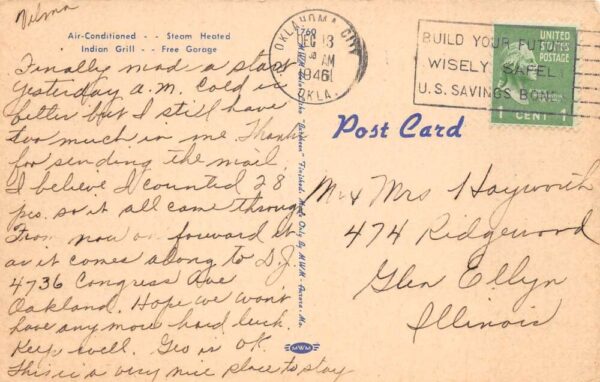 Vilma
Air-Conditioned - - Steam Heated
Indian Grill - - Free Garage
Finally mad a start
yesterday a.m. Cold is
better but I still have
too much in me. Thanks
for sending the mail.
I believe I counted 28
pcs. so it all came through
From now on forward it
as it comes along to D.J.
4736 Congress Ave
Oakland. Hope we won't
have any more hard luck.
Keep well. Geo is OK.
This is a very nice place to stay
760
MWM Color-Litho "Northern" Finished. Made Only By MWM. Aurora, Mo.
MWM
OKLAHOMA CITY
DEC 13
AM
1946
OKLA.
BUILD YOUR FUTURE
WISELY SAFELY
U.S. SAVINGS BONDS
UNITED
STATES
POSTAGE
1 CENT 1
Post Card
Mr & Mrs Hayworth
474 Ridgewood
Glen Ellyn
Illinois